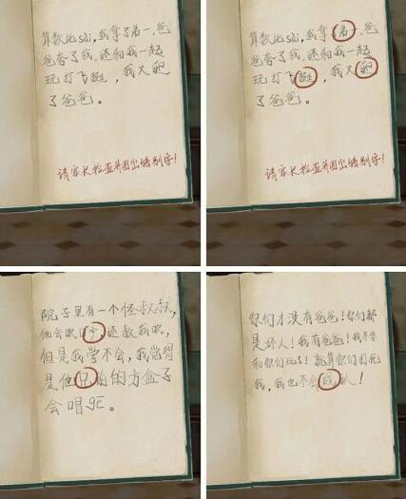 算数比sài,我拿了弟一,爸
爸夸了我,还和我一起
玩打飞挺,我又
了爸爸。
请家长检查并圈出错别字!
算数比sài,我拿了弟一,爸
爸夸了我,还和我一起
玩打飞挺,我又
了爸爸。
请家长检查并圈出错别字!
院子里有一个怪叔叔,
他会吹口少,还教我吹,
但是我学不会,我觉得
是他兄 的方盒子
会唱gē。
你们才没有爸爸!你们都
是坏人!我有爸爸!我不要
和你们玩了!就算你们打死
我,我也不会 人!